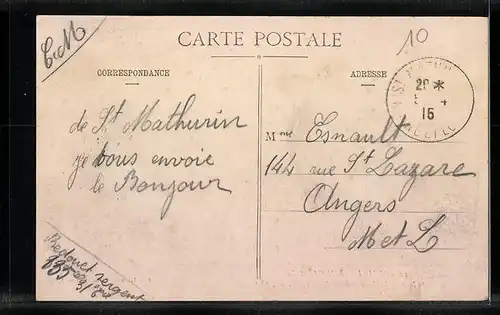 C.M
CARTE POSTALE
10
CORRESPONDANCE
ADRESSE
ST MATHU
29 *
5 - 4
15
de St Mathurin
je vous envoie
le Bonjour
Mme Esnault
144 rue St Lazare
Angers
M et L
sergent
135